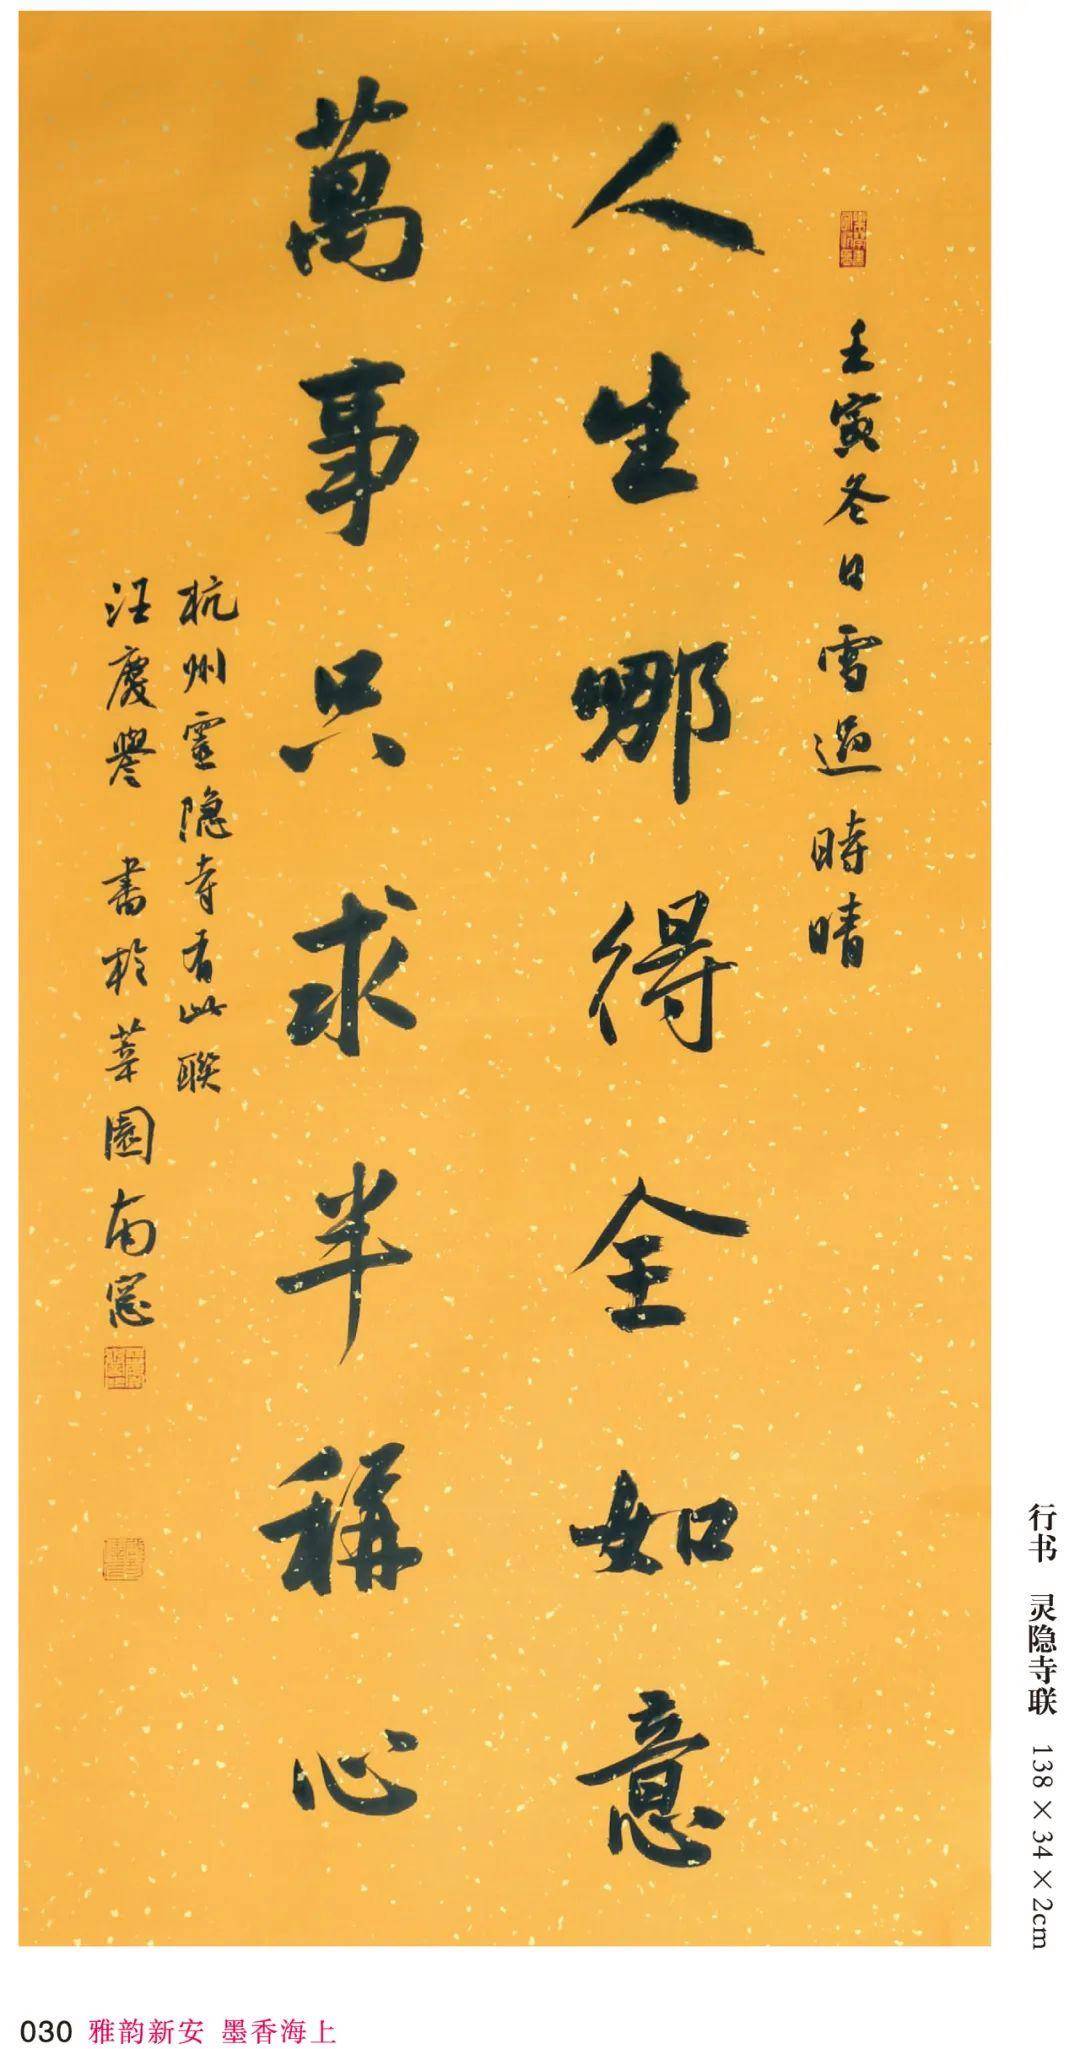 壬寅冬日雪過時晴
人生哪得全如意
萬事只求半稱心
杭州靈隐寺有此聯
汪慶譽 書於菜園南窓
行书 灵隐寺联 138×34×2cm
030 雅韵新安 墨香海上